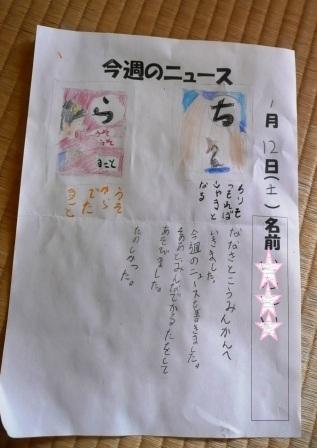 今週のニュース
1月12日(土)
名前
ち
ちりも
つもれば
やまと
なる
ら
うそ
うそ
まこと
うそ
から
でた
まこと
ななさとこうみんかんへ
いきました。
今週のニュースを書きました。
みんなでかるたをして
あそびました。
たのしかった。